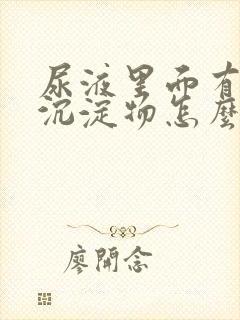 尿液里面有
沉淀物怎麼
廖開念